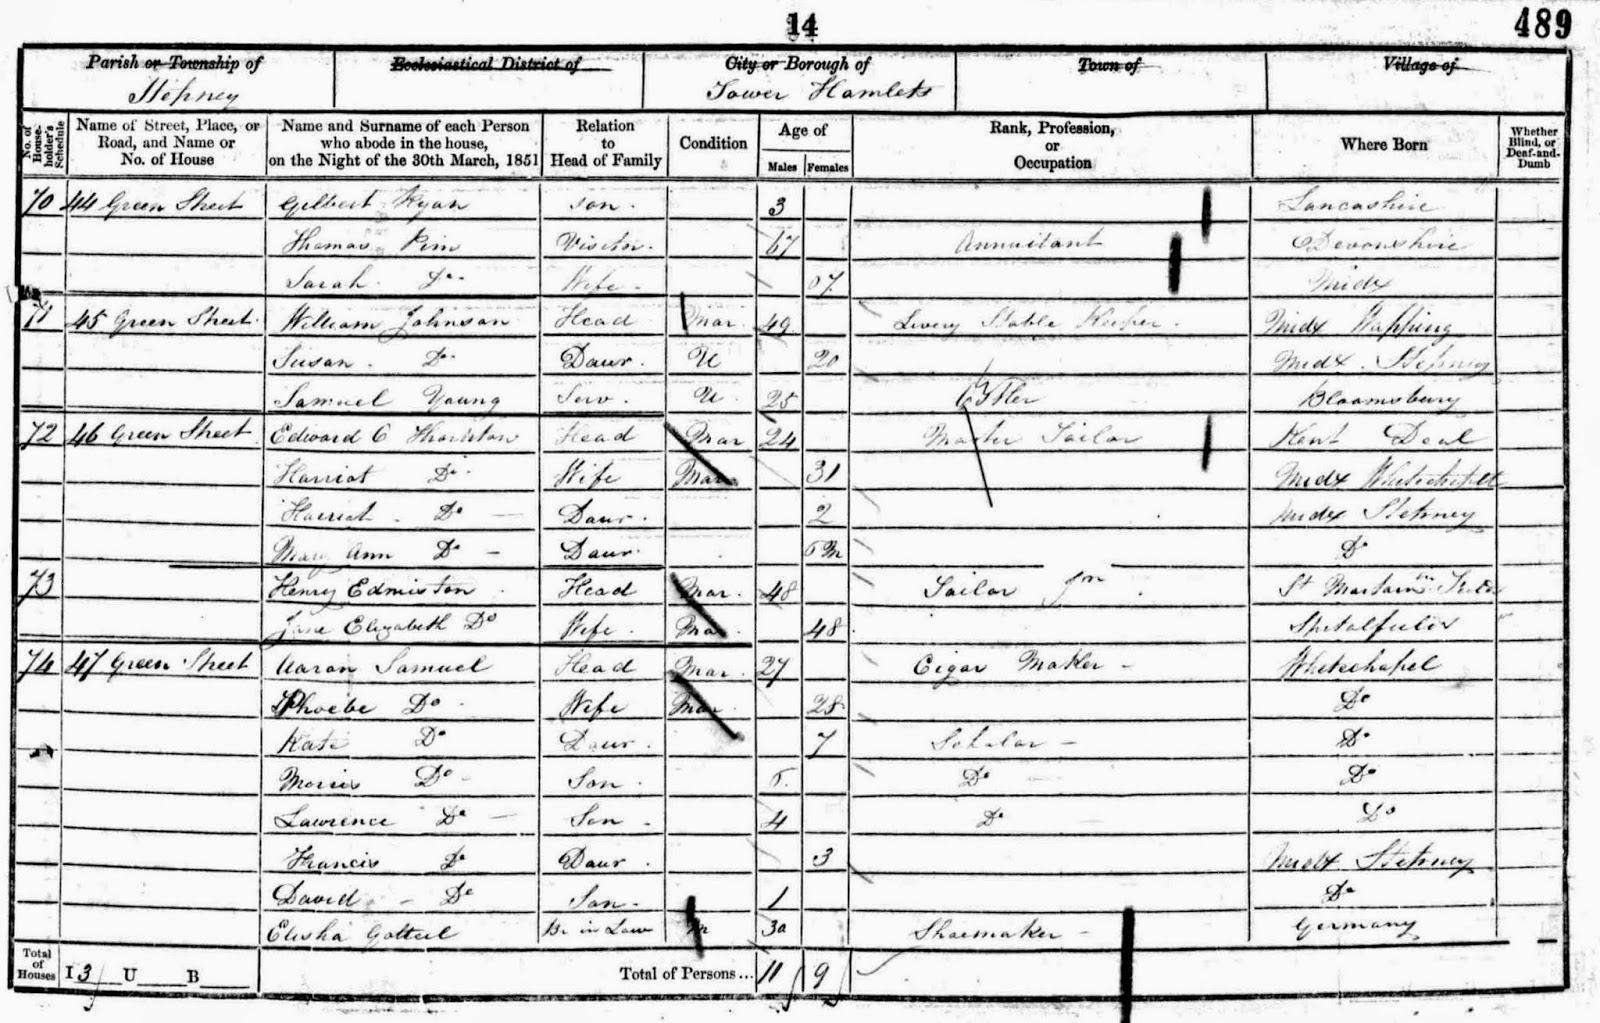 14
489
Parish or Township of Ecclesiastical District of City or Borough of Town of Village of
Stepney Tower Hamlets
No. of House-holder's Schedule
Name of Street, Place, or Road, and Name or No. of House
Name and Surname of each Person who abode in the house, on the Night of the 30th March, 1851
Relation to Head of Family
Condition
Age of
Males Females
Rank, Profession, or Occupation
Where Born
Whether Blind, or Deaf-and-Dumb
70 44 Green Street Gilbert Ryan Son. 3 Lancashire
Thomas Pim Visitor. 67 Annuitant Devonshire
Sarah Do Wife. 67 Midx
71 45 Green Street William Johnson Head Mar. 49 Livery Stable Keeper. Midx Wapping
Susan. Do Daur. U 20 Midx. Stepney
Samuel Young Serv. U. 25 Ostler Bloomsbury
72 46 Green Street Edward C Head Mar 24 Master Tailor Kent Deal
Harriot Do Wife Mar 31 Midx Whitechapel
Harriot Do Daur. 2 Midx Stepney
Mary Ann Do Daur. 5 M Do
73 Henry Edmiston Head Mar. 48 Tailor Jm St Martains
Jane Elizabeth Do Wife. Mar. 48 Spitalfields
74 47 Green Street Aaron Samuel Head Mar. 27 Cigar Maker Whitechapel
Phoebe Do Wife Mar. 28 Do
Kate Do Daur. 7 Scholar Do
Morris Do Son. 5 Do Do
Lawrence Do Son 4 Do Do
Francis Do Daur. 3 Midx Stepney
David Do Son. 1 Do
Elisha Gotteil Br in Law M 30 Shoemaker Germany
Total of Houses I 3 U B Total of Persons... 11 9